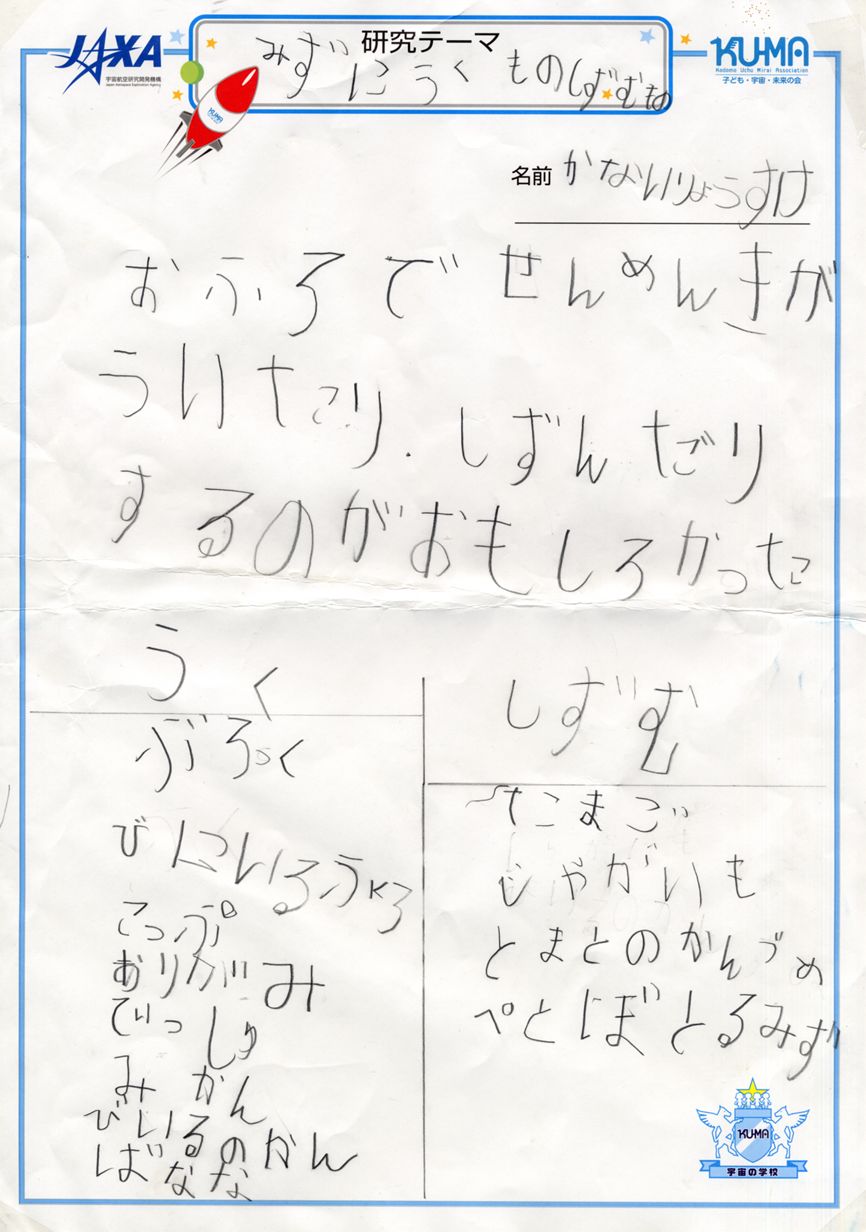 JAXA
宇宙航空研究開発機構
Japan Aerospace Exploration Agency
研究テーマ
みずにうくものしずむもの
KU-MA
Kodomo Uchu Mirai Association
子ども・宇宙・未来の会
KU-MA
名前 かないりょうすけ
おふろで せんめんきが
ういたり.しずんだり
するのがおもしろかった
うく
ぶろっく
びにいるふくろ
こっぷ
おりがみ
でぃっしゅ
みかん
びいるのかん
ばなな
しずむ
たまご
じゃがいも
とまとのかんづめ
ぺとぼとるみず
KU-MA
宇宙の学校